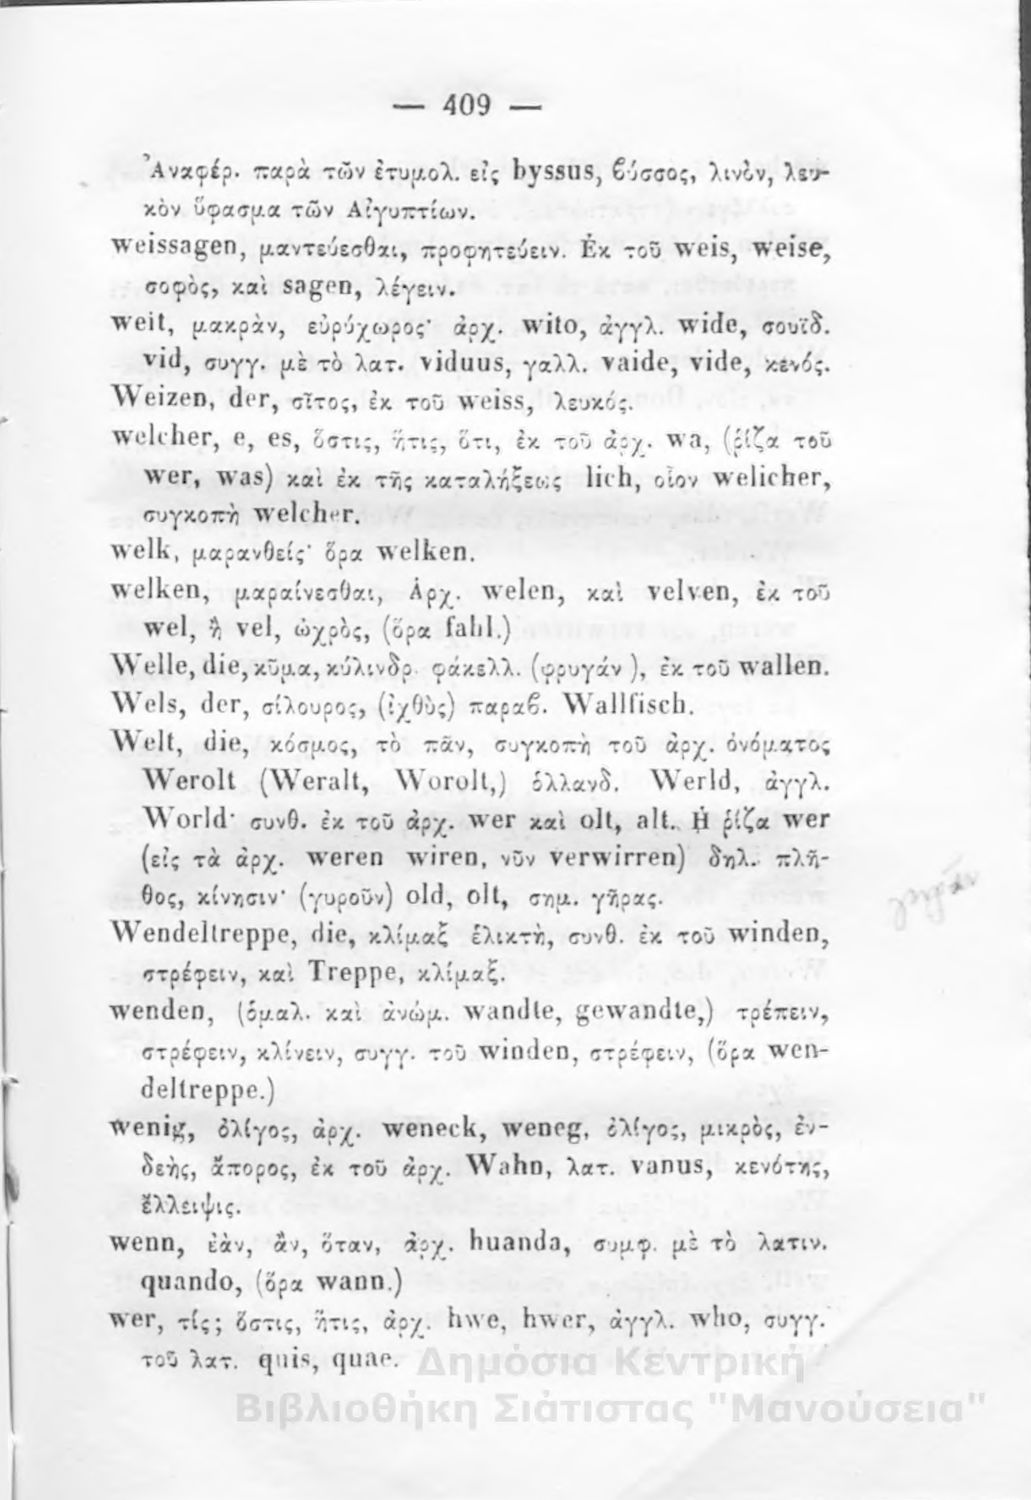 — 409 —
Ἀναφέρ. παρὰ τῶν ἐτυμολ. εἰς byssus, ϐύσσος, λινὸν, λευ-
κὸν ὕφασμα τῶν Αἰγυπτίων.
weissagen, μαντεύεσθαι, προφητεύειν. Ἐκ τοῦ weis, weise,
σοφὸς, καὶ sagen, λέγειν.
weit, μακρὰν, εὐρύχωρος· ἀρχ. wito, ἀγγλ. wide, σουϊδ.
vid, συγγ. μὲ τὸ λατ. viduus, γαλλ. vaide, vide, κενός.
Weizen, der, σῖτος, ἐκ τοῦ weiss, λευκός.
welcher, e, es, ὅστις, ἥτις, ὅτι, ἐκ τοῦ ἀρχ. wa, (ῥίζα τοῦ
wer, was) καὶ ἐκ τῆς καταλήξεως lich, οἷον welicher,
συγκοπὴ welcher.
welk, μαρανθείς· ὅρα welken.
welken, μαραίνεσθαι, Ἀρχ. welen, καὶ velven, ἐκ τοῦ
wel, ἢ vel, ὠχρὸς, (ὅρα fahl.)
Welle, die, κῦμα, κύλινδρ. φάκελλ. (φρυγάν ), ἐκ τοῦ wallen.
Wels, der, σίλουρος, (ἰχθὺς) παραϐ. Wallfisch.
Welt, die, κόσμος, τὸ πᾶν, συγκοπὴ τοῦ ἀρχ. ὀνόματος
Werolt (Weralt, Worolt,) ὁλλανδ. Werld, ἀγγλ.
World· συνθ. ἐκ τοῦ ἀρχ. wer καὶ olt, alt. Ἡ ῥίζα wer
(εἰς τὰ ἀρχ. weren wiren, νῦν verwirren) δηλ. πλῆ-
θος, κίνησιν· (γυροῦν) old, olt, σημ. γῆρας.
Wendeltreppe, die, κλίμαξ ἑλικτὴ, συνθ. ἐκ τοῦ winden,
στρέφειν, καὶ Treppe, κλίμαξ.
wenden, (ὁμαλ. καὶ ἀνώμ. wandte, gewandte,) τρέπειν,
στρέφειν, κλίνειν, συγγ. τοῦ winden, στρέφειν, (ὅρα wen-
deltreppe.)
wenig, ὀλίγος, ἀρχ. weneck, weneg, ὀλίγος, μικρὸς, ἐν-
δεὴς, ἄπορος, ἐκ τοῦ ἀρχ. Wahn, λατ. vanus, κενότης,
ἔλλειψις.
wenn, ἐὰν, ἂν, ὅταν, ἀρχ. huanda, συμφ. μὲ τὸ λατιν.
quando, (ὅρα wann.)
wer, τίς; ὅστις, ἥτις, ἀρχ. hwe, hwer, ἀγγλ. who, συγγ.
τοῦ λατ. quis, quae.
Δημόσια Κεντρική
Βιβλιοθήκη Σιάτιστας "Μανούσεια"